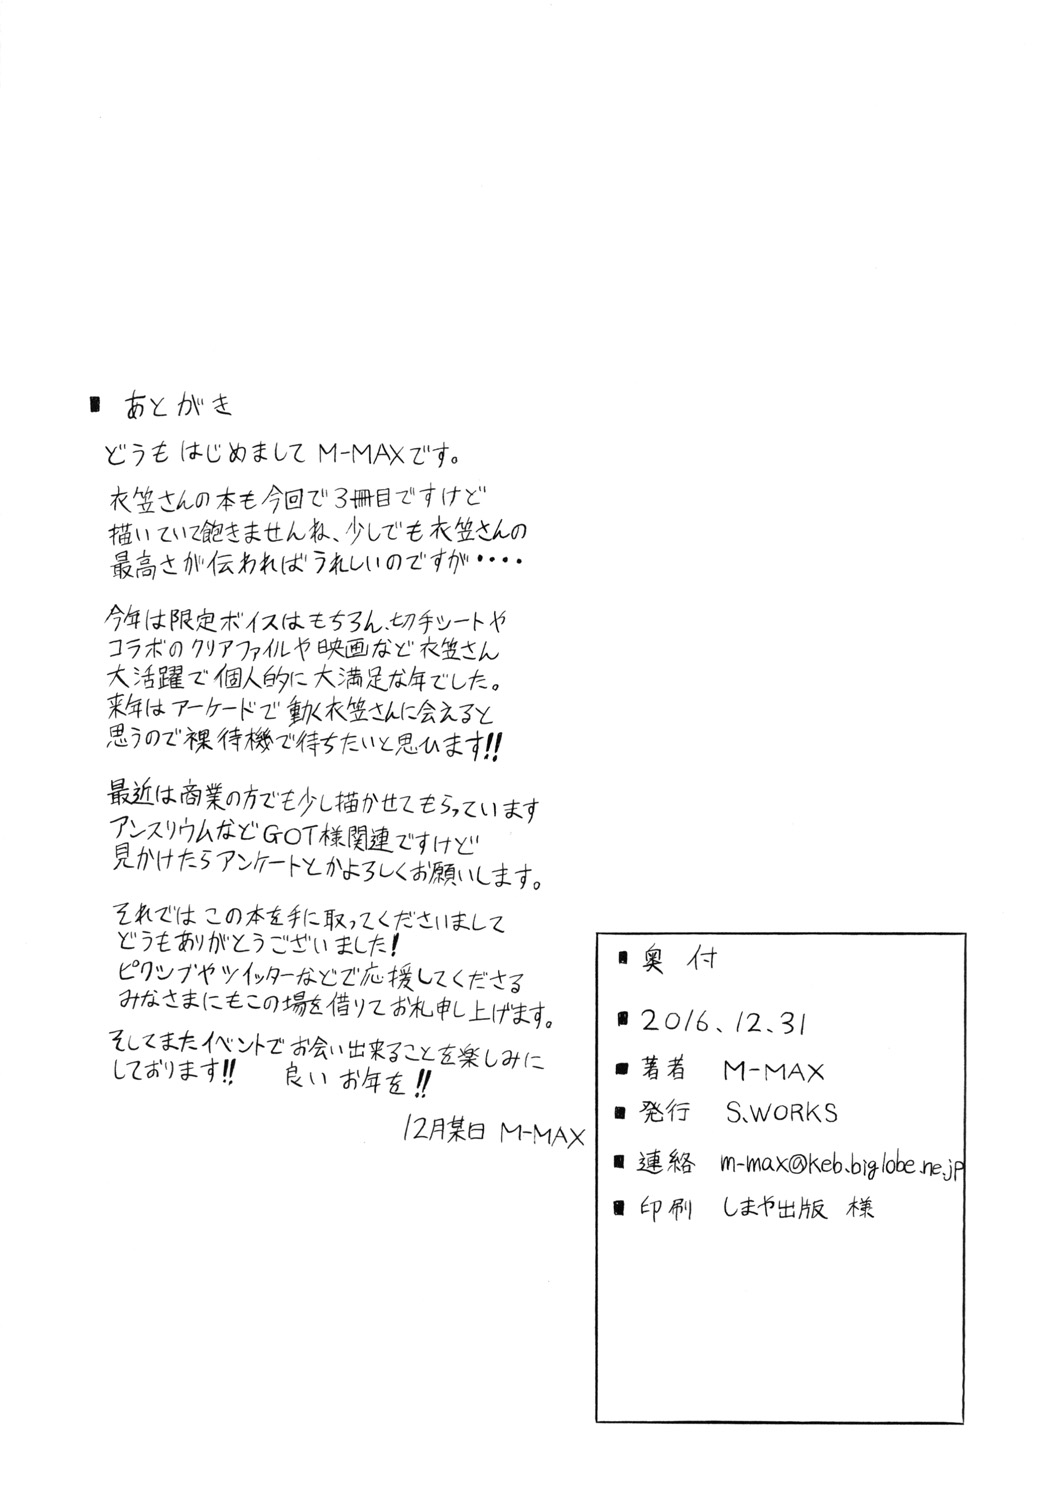 ■ あとがき
どうも はじめまして M-MAXです。
衣笠さんの本も今回で3冊目ですけど
描いていて飽きませんね、少しでも衣笠さんの
最高さが伝わればうれしいのですが・・・・
今年は限定ボイスはもちろん、切手シートや
コラボのクリアファイルや映画など衣笠さん
大活躍で個人的に大満足な年でした。
来年はアーケードで動く衣笠さんに会えると
思うので裸待機で待ちたいと思ひます!!
最近は商業の方でも少し描かせてもらっています
アンスリウムなどGOT様関連ですけど
見かけたらアンケートとかよろしくお願いします。
それでは この本を手に取ってくださいまして
どうもありがとうございました!
ピクシブやツイッターなどで応援してくださる
みなさまにもこの場を借りてお礼申し上げます。
そしてまたイベントでお会い出来ることを楽しみに
しております!! 良い お年を!!
12月某日 M-MAX
■ 奥付
■ 2016、12、31
■ 著者 M-MAX
■ 発行 S、WORKS
■ 連絡 m-max@keb.biglobe.ne.jp
■ 印刷 しまや出版 様